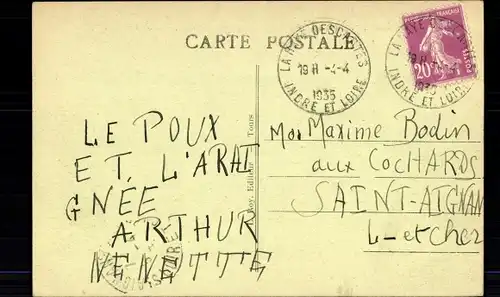 CARTE POSTALE
LA HAYE DESCARTES
19 H -4-4
1935
INDRE ET LOIRE
LA HAYE DESCARTES
19 H
1935
INDRE ET LOIRE
20
LE POUX
ET L'ARAI
GNÉE
ARTHUR
NENETTE
Maxime Bodin
aux COCHARDS
SAINT-AIGNAN
L-et Cher
Éditeur Tours